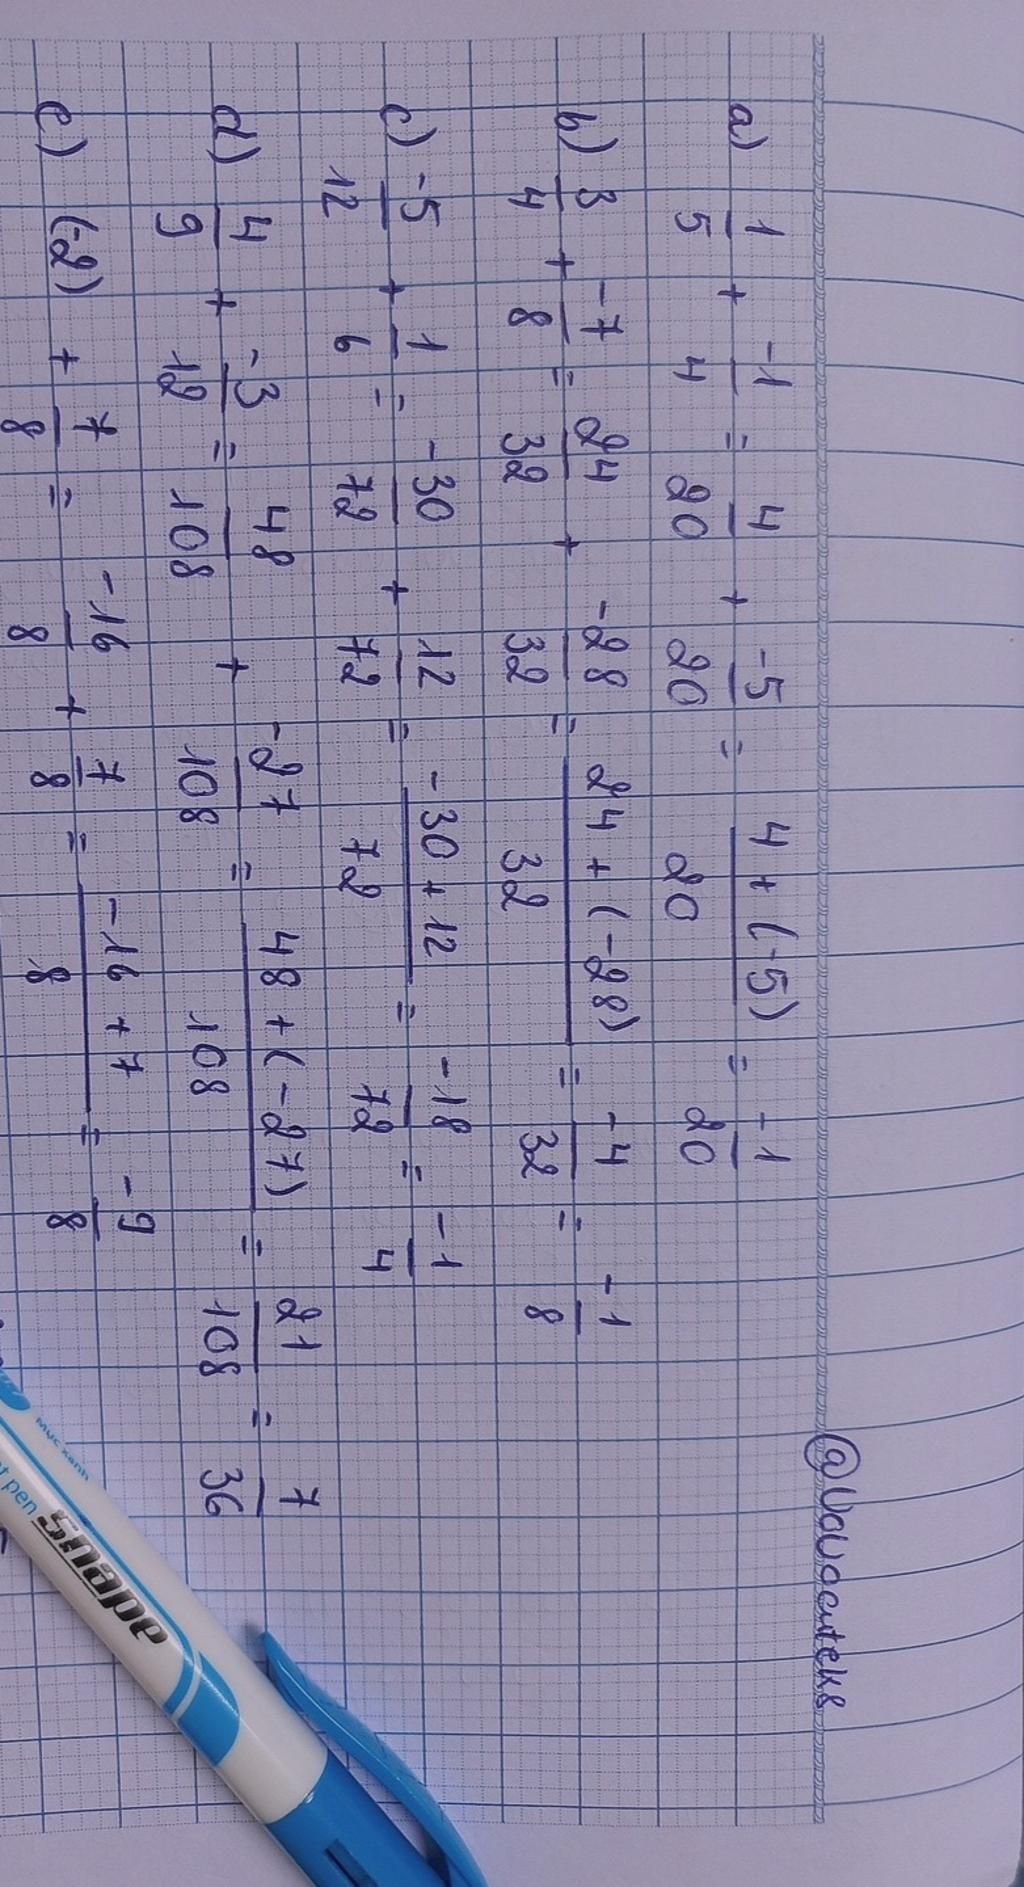 @Vavacutek8
a) 1/5 + -1/4 = 4/20 + -5/20 = 4+(-5)/20 = -1/20
b) 3/4 + -7/8 = 24/32 + -28/32 = 24+(-28)/32 = -4/32 = -1/8
c) -5/12 + 1/6 = -30/72 + 12/72 = -30+12/72 = -18/72 = -1/4
d) 4/9 + -3/12 = 48/108 + -27/108 = 48+(-27)/108 = 21/108 = 7/36
e) (-2) + 7/8 = -16/8 + 7/8 = -16+7/8 = -9/8
Mực xanh
pen
Snape